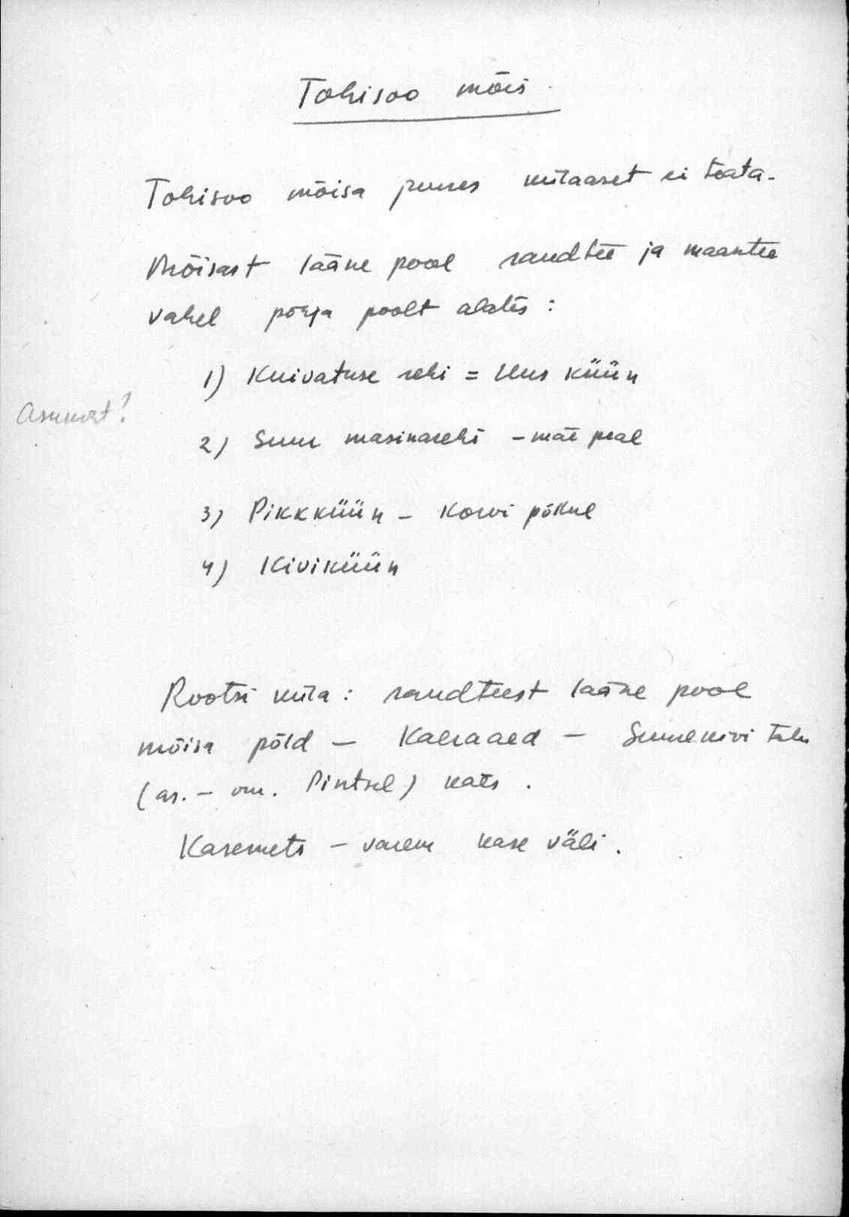 Tohisoo mõis.
Tohisoo mõisa juures külaaset ei teata.
Mõisast lääne pool raudtee ja maantee
vahel põhja poolt alates:
1) Kuivatuse rehi = Uus küün
Asuvat!
2) Suur masinarehi - mäe peal
3) Pikkküün - Korvi põllul
4) Kiviküün
Rootsi küla: raudteest lääne pool
mõisa põld - Kaeraaed - Suurekivi talu
(as. - om. Pintsel) kats.
Kasemets - varem kase väli.